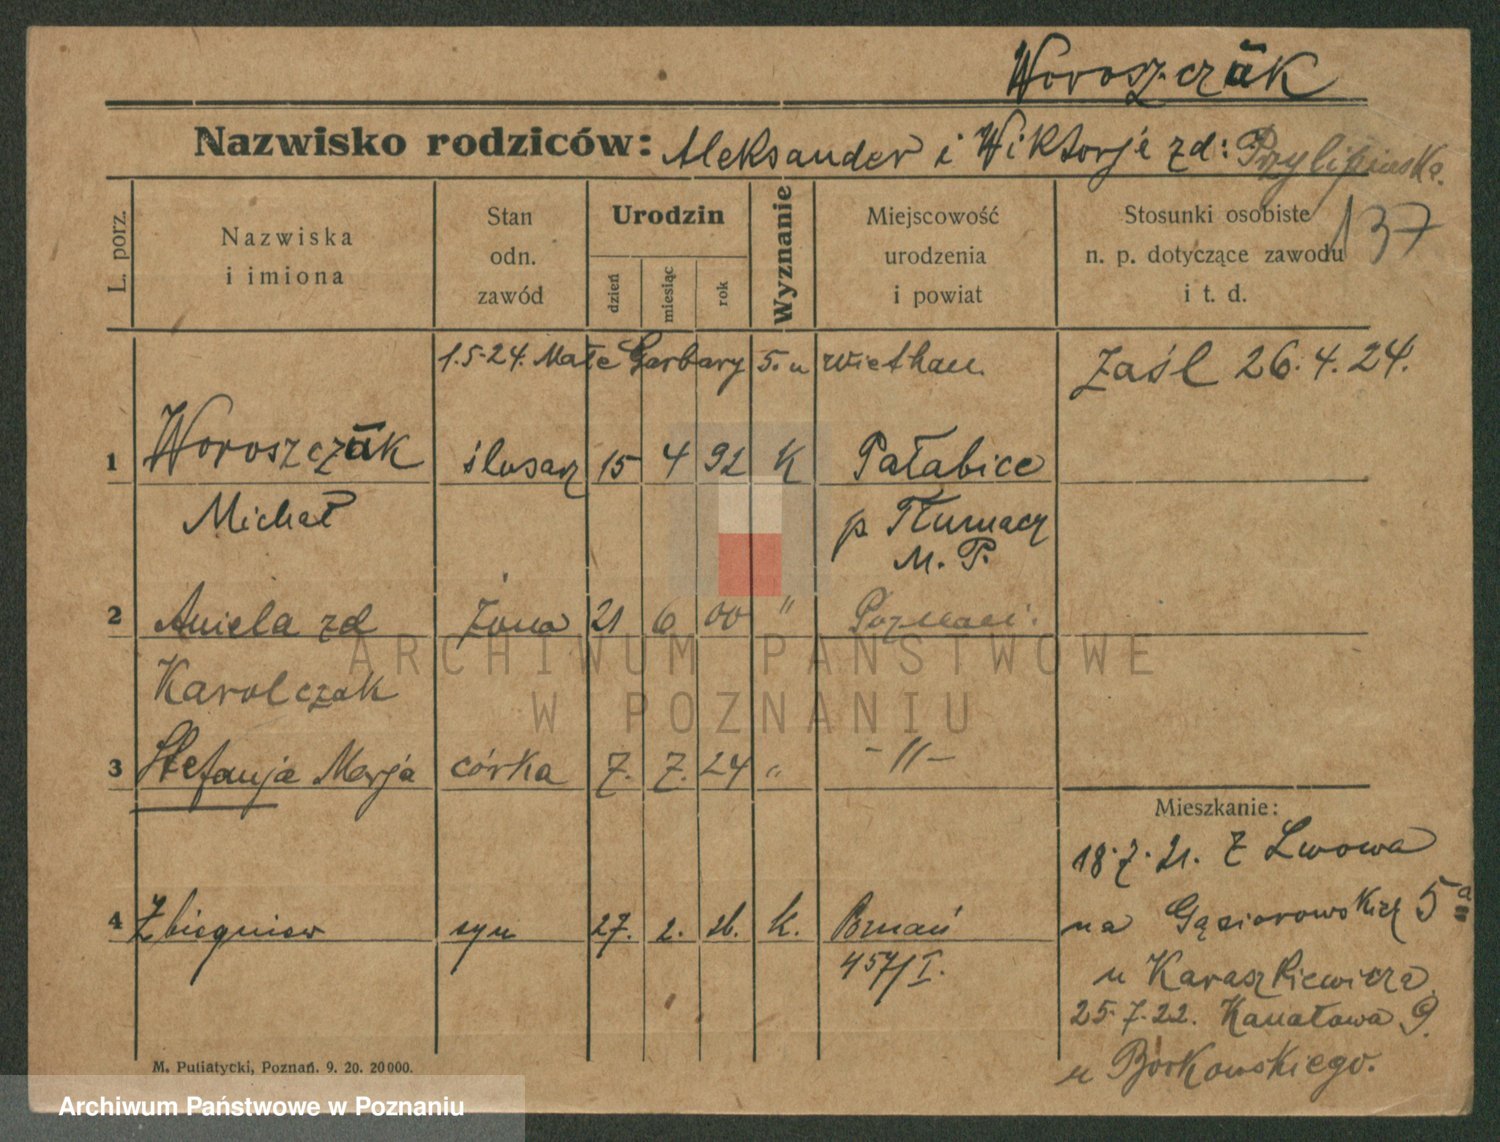 Woroszczak
Nazwisko rodziców: Aleksander i Wiktorje zd: Przylipiaska.
L. porz.
Nazwiska
i imiona
Stan
odn.
zawód
Urodzin
dzień
miesiąc
rok
Wyznanie
Miejscowość
urodzenia
i powiat
Stosunki osobiste
n. p. dotyczące zawodu
i t. d.
137
1.5.24. Małe Garbary 5. u
Zaśl 26.4.24.
1 Woroszczak ślusarz 15 4 92 K Pałabice
Michał p. Tłumacz
M. P.
2 Aniela zd żona 21 6 00 " Poznań.
Karolczak
3 Stefanja Marja córka 7. 7. 24 " -"-
4 Zbiegniew syn 27. 2. 26. k. Poznań
457/I.
Mieszkanie:
18.7.21. Z Lwowa
na Gąsiorowskich 5a
u Karaszkiewicza
25.7.22. Kanałowa 9.
u Borkowskiego.
M. Putiatycki, Poznań. 9. 20. 20000.
ARCHIWUM PAŃSTWOWE
W POZNANIU
Archiwum Państwowe w Poznaniu